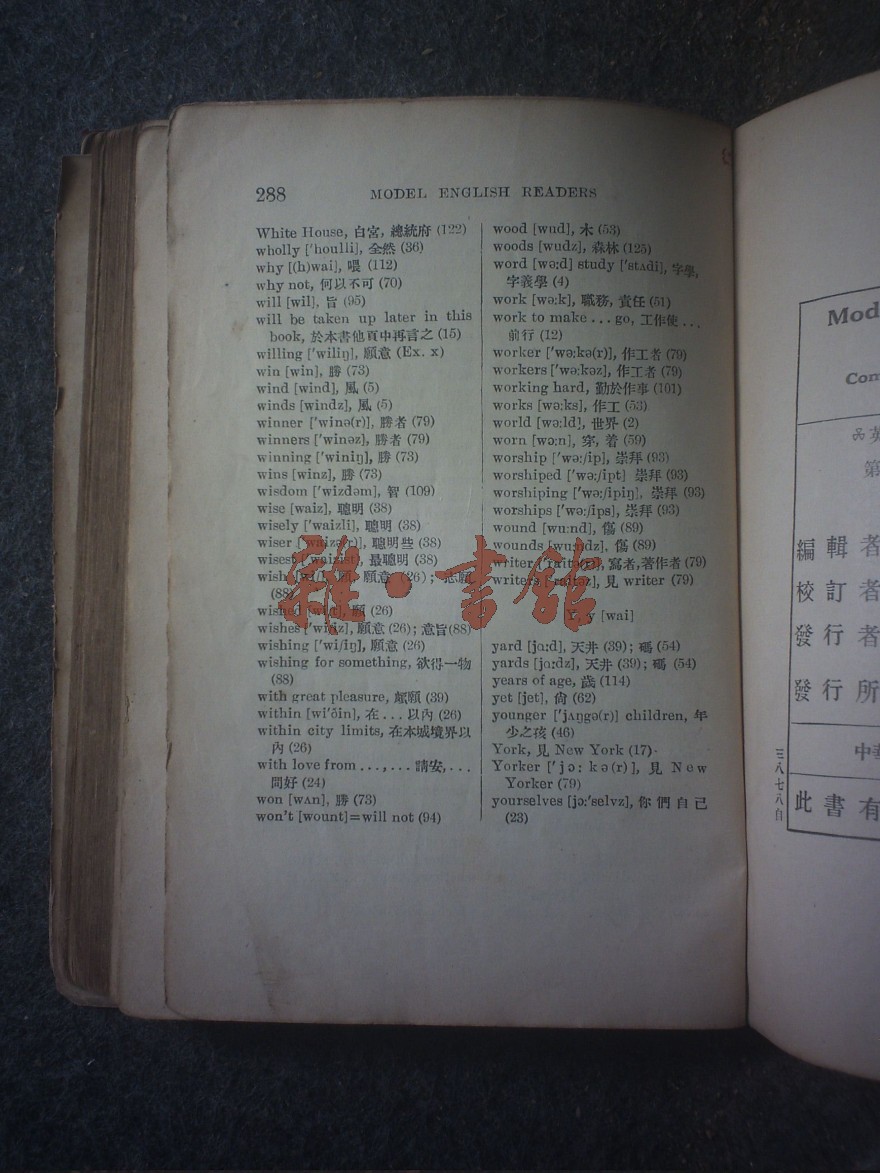 288
MODEL ENGLISH READERS
White House, 白宮, 總統府 (122)
wholly ['houlli], 全然 (36)
why [(h)wai], 喂 (112)
why not, 何以不可 (70)
will [wil], 旨 (95)
will be taken up later in this
book, 於本書他頁中再言之 (15)
willing ['wiliŋ], 願意 (Ex. x)
win [win], 勝 (73)
wind [wind], 風 (5)
winds [windz], 風 (5)
winner ['winə(r)], 勝者 (79)
winners ['winəz], 勝者 (79)
winning ['winiŋ], 勝 (73)
wins [winz], 勝 (73)
wisdom ['wizdəm], 智 (109)
wise [waiz], 聰明 (38)
wisely ['waizli], 聰明 (38)
wiser ['waizə(r)], 聰明些 (38)
wisest ['waizist], 最聰明 (38)
wish [wiʃ], 願, 願意 (26); 志願
(88)
wished [wiʃt], 願 (26)
wishes ['wiʃiz], 願意 (26); 意旨(88)
wishing ['wiʃiŋ], 願意 (26)
wishing for something, 欲得一物
(88)
with great pleasure, 頗願 (39)
within [wi'ðin], 在 ... 以內 (26)
within city limits, 在本城境界以
內 (26)
with love from ...,... 請安,...
問好 (24)
won [wʌn], 勝 (73)
won't [wount]=will not (94)
wood [wud], 木 (53)
woods [wudz], 森林 (125)
word [wə:d] study ['stʌdi], 字學,
字義學 (4)
work [wə:k], 職務, 責任 (51)
work to make ... go, 工作使 ...
前行 (12)
worker ['wə:kə(r)], 作工者 (79)
workers ['wə:kəz], 作工者 (79)
working hard, 勤於作事 (101)
works [wə:ks], 作工 (53)
world [wə:ld], 世界 (2)
worn [wɔ:n], 穿, 着 (59)
worship ['wə:ʃip], 崇拜 (93)
worshiped ['wə:ʃipt] 崇拜 (93)
worshiping ['wə:ʃipiŋ], 崇拜 (93)
worships ['wə:ʃips], 崇拜 (93)
wound [wu:nd], 傷 (89)
wounds [wu:ndz], 傷 (89)
writer ['raitə(r)], 寫者, 著作者 (79)
writers ['raitəz], 見 writer (79)
Y, y [wai]
yard [jɑ:d], 天井 (39); 碼 (54)
yards [jɑ:dz], 天井 (39); 碼 (54)
years of age, 歲 (114)
yet [jet], 尙 (62)
younger ['jʌŋgə(r)] children, 年
少之孩 (46)
York, 見 New York (17)
Yorker ['jɔ:kə(r)], 見 New
Yorker (79)
yourselves [jɔ:'selvz], 你們自己
(23)
雜·書館
Mod
Com
英
第
編輯者
校訂者
發行者
發行所
中華
此書有
三八七八白